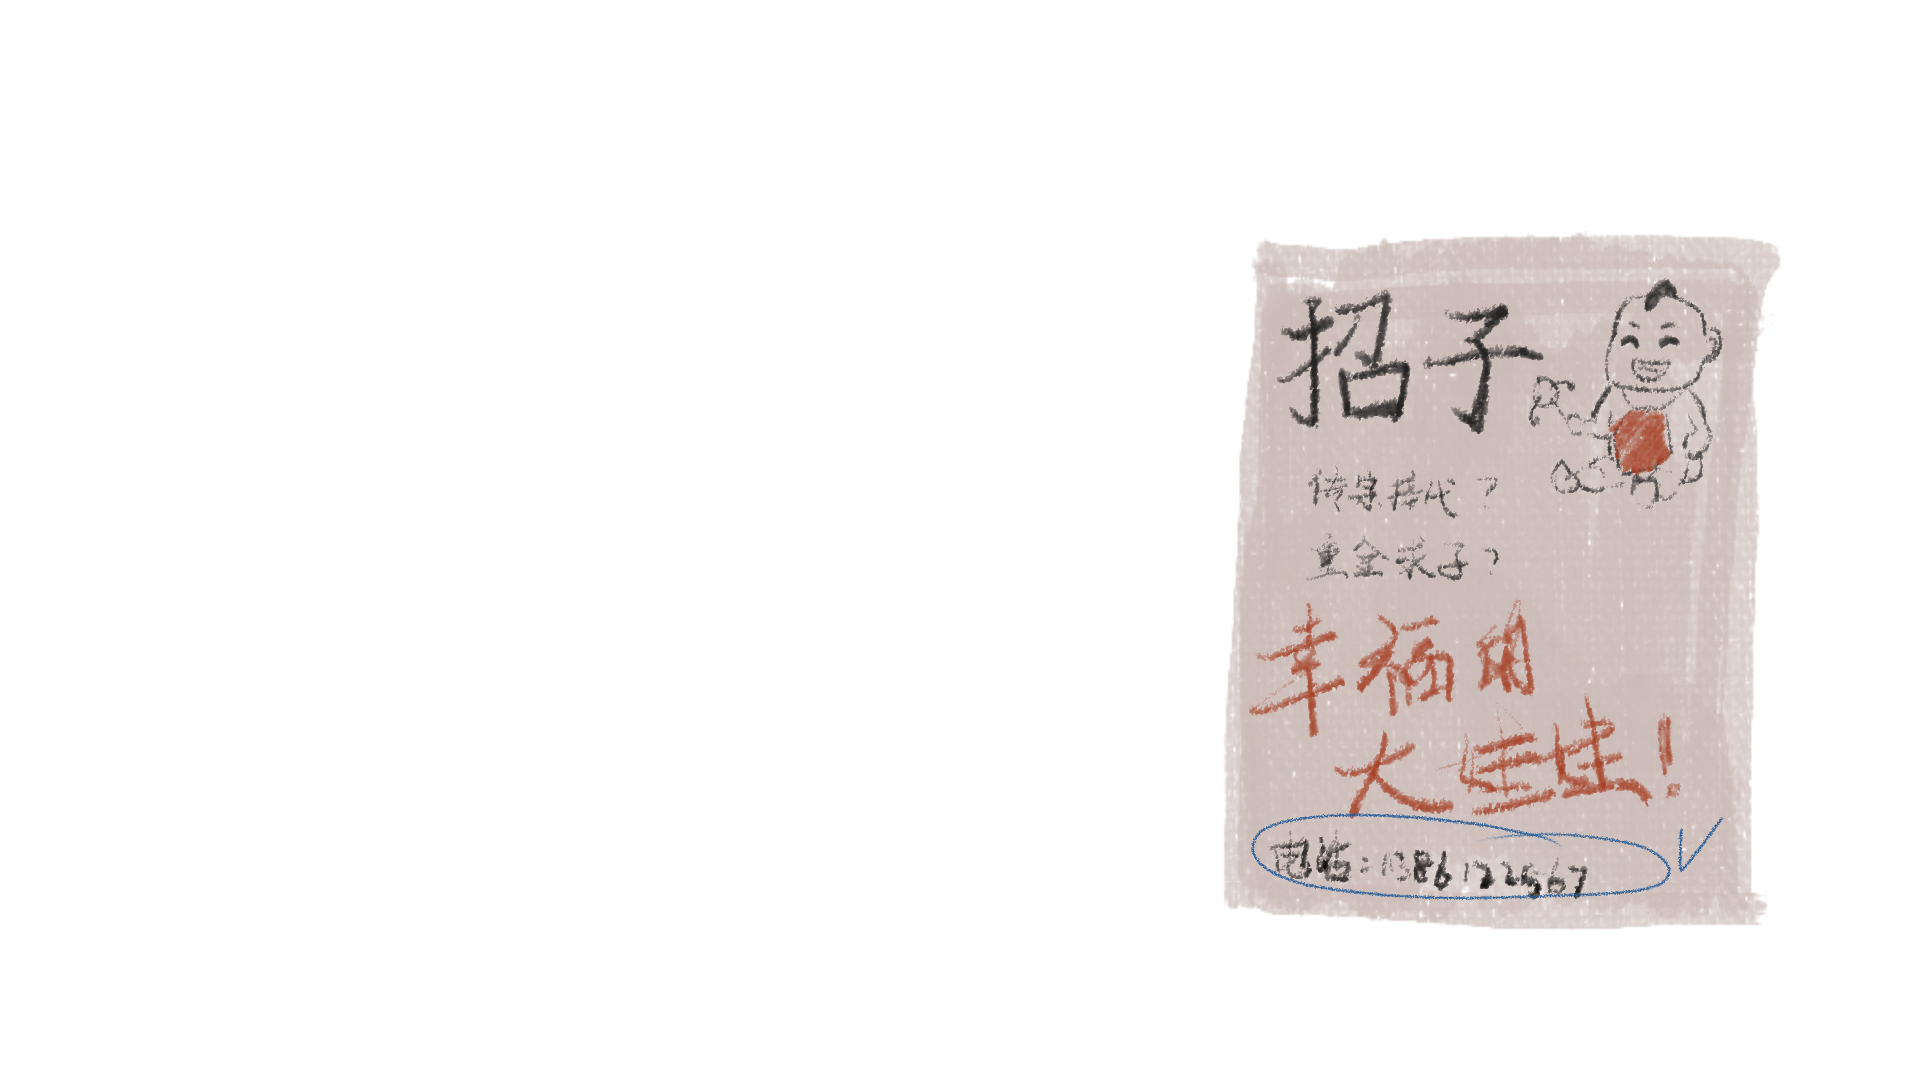 招子
传宗接代?
重金求子?
幸福的
大娃娃!
电话:1386122567